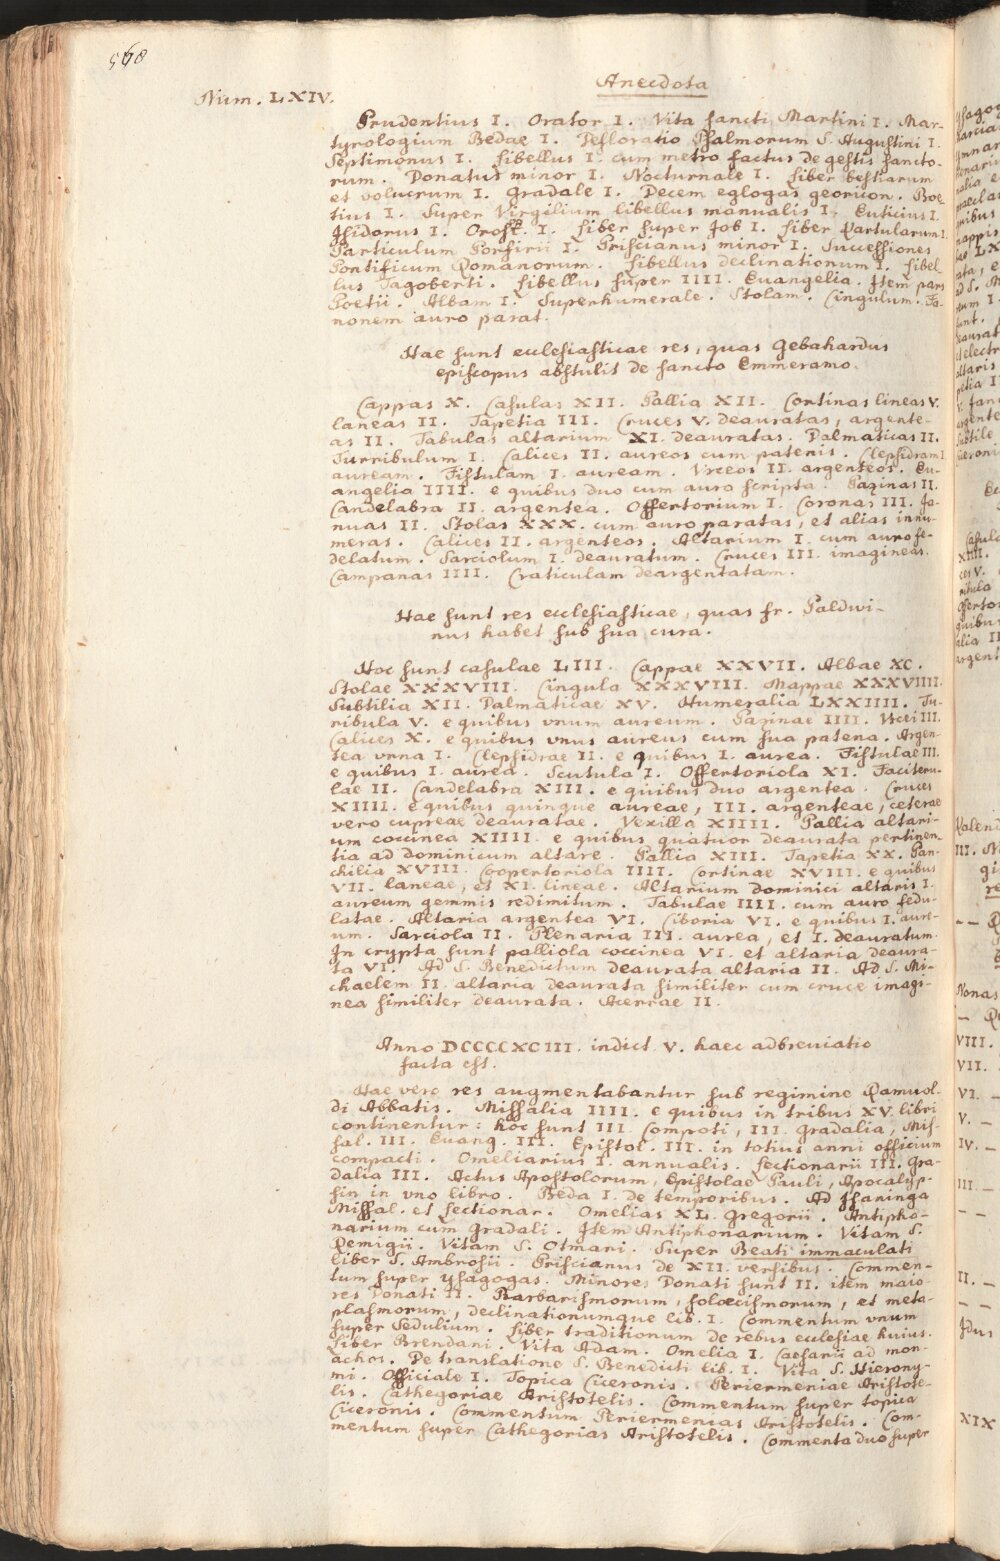 568
Anecdota
Num. LXIV.
Prudentius I. Orator I. Vita sancti Martini I. Mar-
tyrologium Bedae I. Defloratio Psalmorum S. Augustini I.
Septimonus I. Libellus I. cum metro factus de gestis sancto-
rum. Donatus minor I. Nocturnale I. Liber bestiarum
et volucrum I. Gradale I. Decem eglogas georicon. Boe-
tius I. Super Virgilium libellus manualis I. Euticius I.
Isidorus I. Oros. I. Liber super Job I. Liber Partularum I.
Particulum Porfirii I. Priscianus minor I. Successiones
Pontificum Romanorum. Libellus declinationum I. Libel-
lus Tagoberti. Libellus super IIII. Euangelia. Item pars
Poetii. Albam I. Superhumerale. Stolam. Cingulum. Fa-
nonem auro parat.
Hae sunt ecclesiasticae res, quas Gebahardus
episcopus abstulit de sancto Emmeramo.
Cappas X. Casulas XII. Pallia XII. Cortinas lineas V.
laneas II. Tapetia III. Cruces V. deauratas, argente-
as II. Tabulas altarium XI. deauratas. Dalmaticas II.
Turribulum I. Calices II. aureos cum patenis. Clepsidram I.
auream. Fistulam I. auream. Vrceos II. argenteos. Eu-
angelia IIII. e quibus duo cum auro scripta. Paginas II.
Candelabra II. argentea. Offertorium I. Coronas III. Ja-
nuas II. Stolas XXX. cum auro paratas, et alias innu-
meras. Calices II. argenteos. Altarium I. cum auro fe-
delatum. Sarciolum I. deauratum. Cruces III. imagineas.
Campanas IIII. Craticulam deargentatam.
Hae sunt res ecclesiasticae, quas fr. Paldwi-
nus habet sub sua cura.
Hoc sunt casulae LIII. Cappae XXVII. Albae XC.
Stolae XXXVIII. Cingula XXXVIII. Mappae XXXVIIII.
Subtilia XII. Dalmaticae XV. Humeralia LXXIIII. Tu-
ribula V. e quibus vnum aureum. Paginae IIII. Vrcei III.
Calices X. e quibus vnus aureus cum sua patena. Argen-
tea vrna I. Clepsidrae II. e quibus I. aurea. Fistulae III.
e quibus I. aurea. Scutula I. Offertoriola XI. Faciteru-
lae II. Candelabra XIII. e quibus duo argentea. Cruces
XIIII. e quibus quinque aureae, III. argenteae, ceterae
vero cupreae deauratae. Vexilla XIIII. Pallia altari-
um coccinea XIIII. e quibus quatuor deaurata pertinen-
tia ad dominicum altare. Pallia XIII. Tapetia XX. Pan-
chilia XVIII. Coopertoriola IIII. Cortinae XVIII. e quibus
VII. laneae, et XI. lineae. Altarium dominici altaris I.
aureum gemmis redimitum. Tabulae IIII. cum auro fedu-
latae. Altaria argentea VI. Ciboria VI. e quibus I. aure-
um. Sarciola II. Plenaria III. aurea, et I. deauratum.
In crypta sunt palliola coccinea VI. et altaria deaura-
ta VI. Ad S. Benedictum deaurata altaria II. Ad S. Mi-
chaelem II. altaria deaurata similiter cum cruce imagi-
nea similiter deaurata. Acerrae II.
Anno DCCCCXCIII. indict. V. haec adbreuiatio
facta est.
Hae vero res augmentabantur sub regimine Ramuol-
di Abbatis. Missalia IIII. e quibus in tribus XV. libri
continentur: hoc sunt III. Compoti, III. Gradalia, Mis-
sal. III. Euang. III. Epistol. III. in totius anni officium
compacti. Omeliarius I. annualis. Lectionarii III. Gra-
dalia III. Actus Apostolorum, Epistolae Pauli, Apocalyp-
sin in vno libro. Beda I. de temporibus. Ad Isaninga
Missal. et Lectionar. Omelias XL. Gregorii. Antipho-
narium cum Gradali. Item Antiphonarium. Vitam S.
Remigii. Vitam S. Otmari. Super Beati immaculati
liber S. Ambrosii. Priscianus de XII. versibus. Commen-
tum super ysagogas. Minores Donati sunt II. item maio-
res Donati II. Barbarismorum, soloecismorum, et meta-
plasmorum, declinationumque lib. I. Commentum vnum
super Sedulium. Liber traditionum de rebus ecclesiae huius.
Liber Brendani. Vita Adam. Omelia I. Caesarii ad mon-
achos. De translatione S. Benedicti lib. I. Vita S. Hierony-
mi. Officiale I. Topica Ciceronis. Periermeniae Aristote-
lis. Cathegoriae Aristotelis. Commentum super topica
Ciceronis. Commentum Periermenias Aristotelis. Com-
mentum super Cathegorias Aristotelis. Commenta duo super